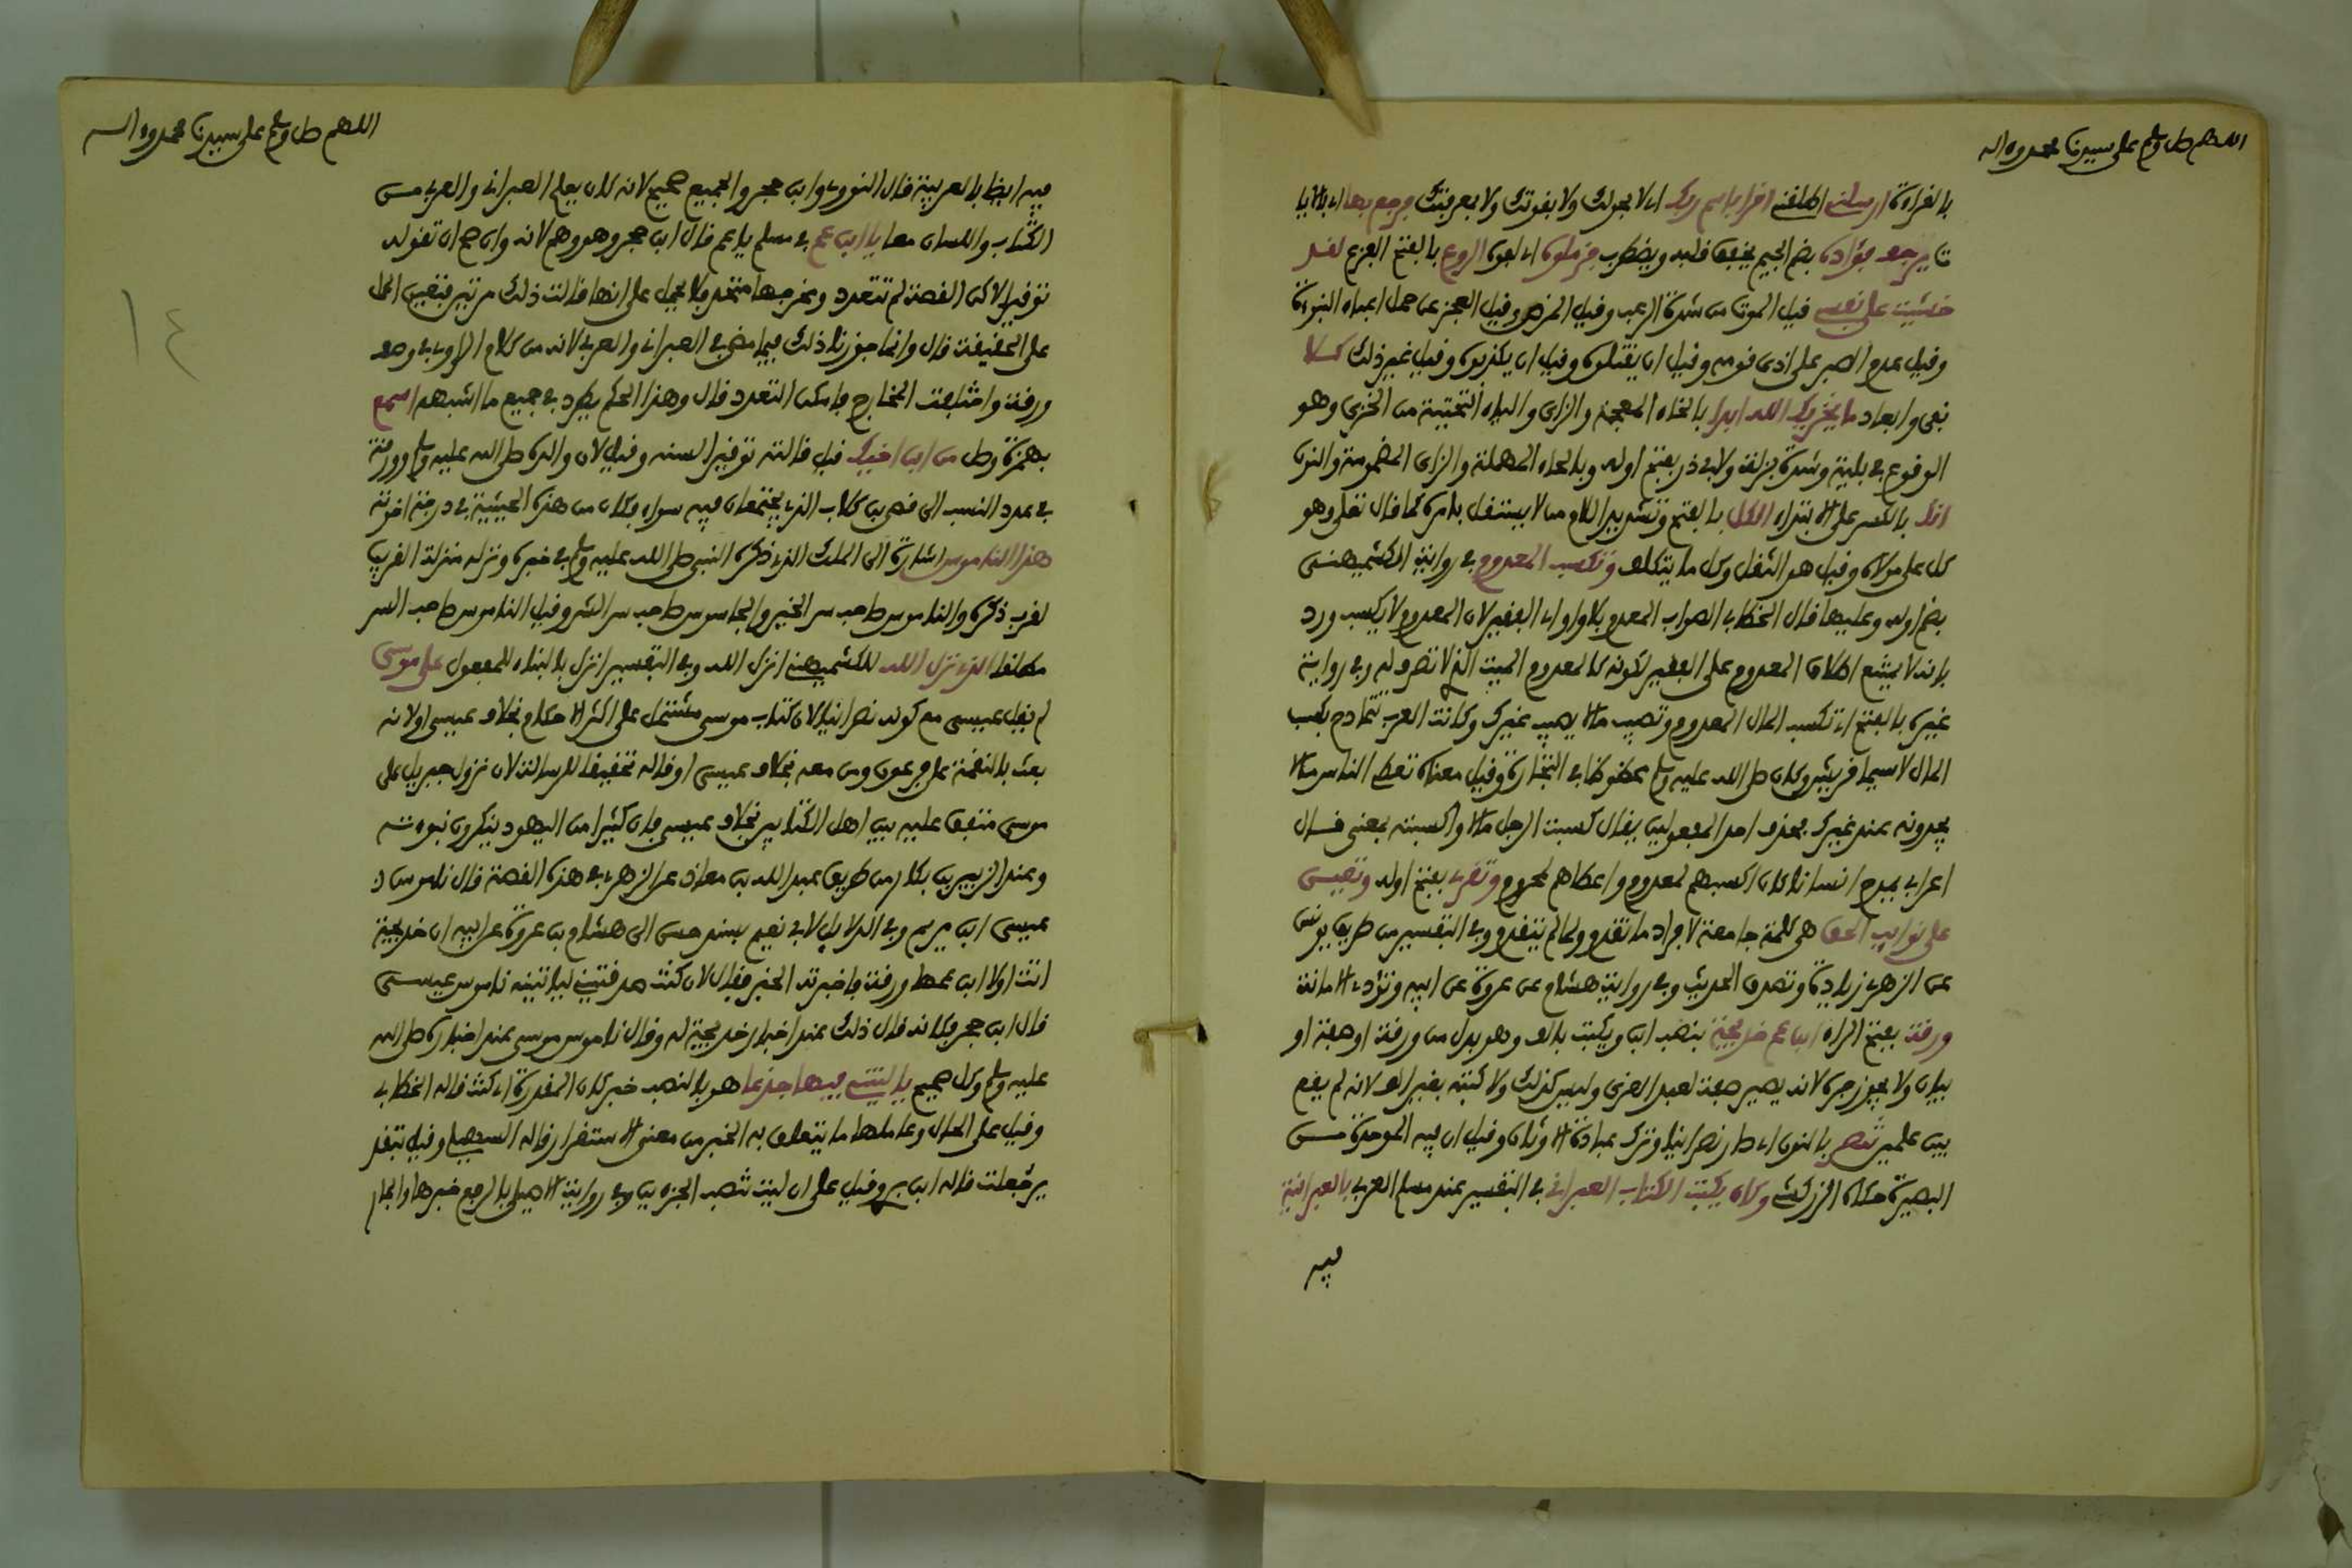 اللهم صل وسلم على سيدنا محمد وءاله
بالقراءة ارسلنى اطلقنى اقرا باسم ربك اى لا بحولك ولا بقوتك ولا بمعرفتك فرجع بها اى بالايا
ت يرجف فؤاده بضم الجيم يخفق قلبه ويضطرب فزملوه اى لفوه الروع بالفتح الفزع لقد
خشيت على نفسى قيل الموت من شدة الرعب وقيل المرض وقيل العجز عن حمل اعباء النبوءة
وقيل عدم الصبر على اذى قومه وقيل ان يقتلوه وقيل ان يكذبوه وقيل غير ذلك كلا
نفى وابعاد ما يخزيك الله ابدا بالخاء المعجمة والزاى والياء التحتية من الخزي وهو
الوقوع فى بلية وشدة بذلة ولابى ذر بفتح اوله وبالحاء المهملة والزاى المضمومة والنون
انك بالكسر على الابتداء الكل بالفتح وتشديد اللام من لا يستقل بامره كما قال تعلى وهو
كل على مولاه وقيل هو الثقل وكل ما يتكلف وتكسب المعدوم فى رواية الكشميهنى
بضم اوله وعليها قال الخطابى الصواب المعدم بلا واو اى الفقير لان المعدوم لا يكسب ورد
بانه لا يمتنع اطلاق المعدوم على الفقير لكونه كالمعدوم الميت الذ لا تصرف له وفى رواية
غيره بالفتح اى تكسب المال المعدوم وتصيب مالا يصيب غيرك وكانت العرب تتمادح بكسب
المال لاسيما قريش وكان صلى الله عليه وسلم محظوظا فى التجارة وقيل معناه تعطى الناس مالا
يجدونه عند غيرك بحذف احد المفعولين يقال كسبت الرجل مالا واكسبته بمعنى قال
اعرابى يمدح انسانا كان اكسبهم لمعدوم واعطاهم لمحروم وتقرى بفتح اوله وتعين
على نوايب الحق هى كلمة جامعة لافراد ما تقدم ولما لم يتقدم وفى التفسير من طريق يونس
عن الزهرى زيادة وتصدق الحديث وفى رواية هشام عن عروة عن ابيه وتؤدى الامانة
ورقة بفتح الراء ابن عم خديجة بنصب ابن ويكتب بالف وهو بدل من ورقة او صفة او
بيان ولا يجوز جره لانه يصير صفة لعبد العزى وليس كذلك ولا كتبه بغير الف لانه لم يقع
بين علمين تنصر بالنون اى صار نصرانيا وترك عبادة الاوثان وقيل ان فيه الموحدة من
البصيرة حكاه الزركشى وكان يكتب الكتاب العبرانى فى التفسير عند مسلم العربى بالعبرانية
فيه
اللهم صل وسلم على سيدنا محمد وءاله
١٤
فيه ايضا بالعربية قال النووى وابن حجر والجميع صحيح لانه كان يعلم العبرانى والعربى من
الكتاب واللسان معا يا ابن عم فى مسلم يا عم قال ابن حجر وهو وهم لانه وان صح ان تقوله
توقيرا لاكن القصة لم تتعدد ومخرجها متحد فلا يحمل على انها قالت ذلك مرتين فتعين الحمل
على الحقيقة قال وانما جوزنا ذلك فيما مضى فى العبرانى والعربى لانه من كلام الراوى فى وصف
ورقة واختلفت المخارج فامكن التعدد قال وهذا الحكم يطرد فى جميع ما اشبهه اسمع
بهمزة وصل من ابن اخيك قيل قالته توقيرا لسنه وقيل لان والده صلى الله عليه وسلم وورقة
فى عدد النسب الى قصى بن كلاب الذى يجتمعان فيه سواء فكان من هذه الحيثية فى درجة اخوته
هذا الناموس اشارة الى الملك الذى ذكره النبى صلى الله عليه وسلم فى خبره ونزله منزلة القريب
لقرب ذكره والناموس صاحب سر الخير والجاسوس صاحب سر الشر وقيل الناموس صاحب السر
مطلقا الذى نزل الله للكشميهنى انزل الله وفى التفسير انزل بالبناء للمفعول على موسى
لم يقل عيسى مع كونه نصرانيا لان كتاب موسى مشتمل على اكثر الاحكام بخلاف عيسى او لانه
بعث بالنقمة على فرعون ومن معه بخلاف عيسى او قاله تحقيقا للرسالة لان نزول جبريل على
موسى متفق عليه بين اهل الكتابين بخلاف عيسى فان كثيرا من اليهود ينكرون نبوءته
وعند الزبير بن بكار من طريق عبد الله بن معاذ عن الزهرى فى هذه القصة قال ناموس
عيسى ابن مريم وفى الدلايل لابى نعيم بسند حسن الى هشام بن عروة عن ابيه ان خديجة
اتت اولا ابن عمها ورقة فاخبرته الخبر فقال لان كنت صدقتينى لياتينه ناموس عيسى
قال ابن حجر فكانه قال ذلك عند اخبار خديجة له وقال ناموس موسى عند اخباره صلى الله
عليه وسلم وكل صحيح ياليتنى فيها جذعا هو بالنصب خبر كان المقدرة اى كنت قاله الخطابى
وقيل على الحال وعاملها ما يتعلق به الخبر من معنى الاستقرار قاله السهيلى وقيل بتقد
ير جعلت قاله ابن برى وقيل على ان ليت تنصب الجزءين وفى رواية الاصيلى بالرفع خبرها والجار